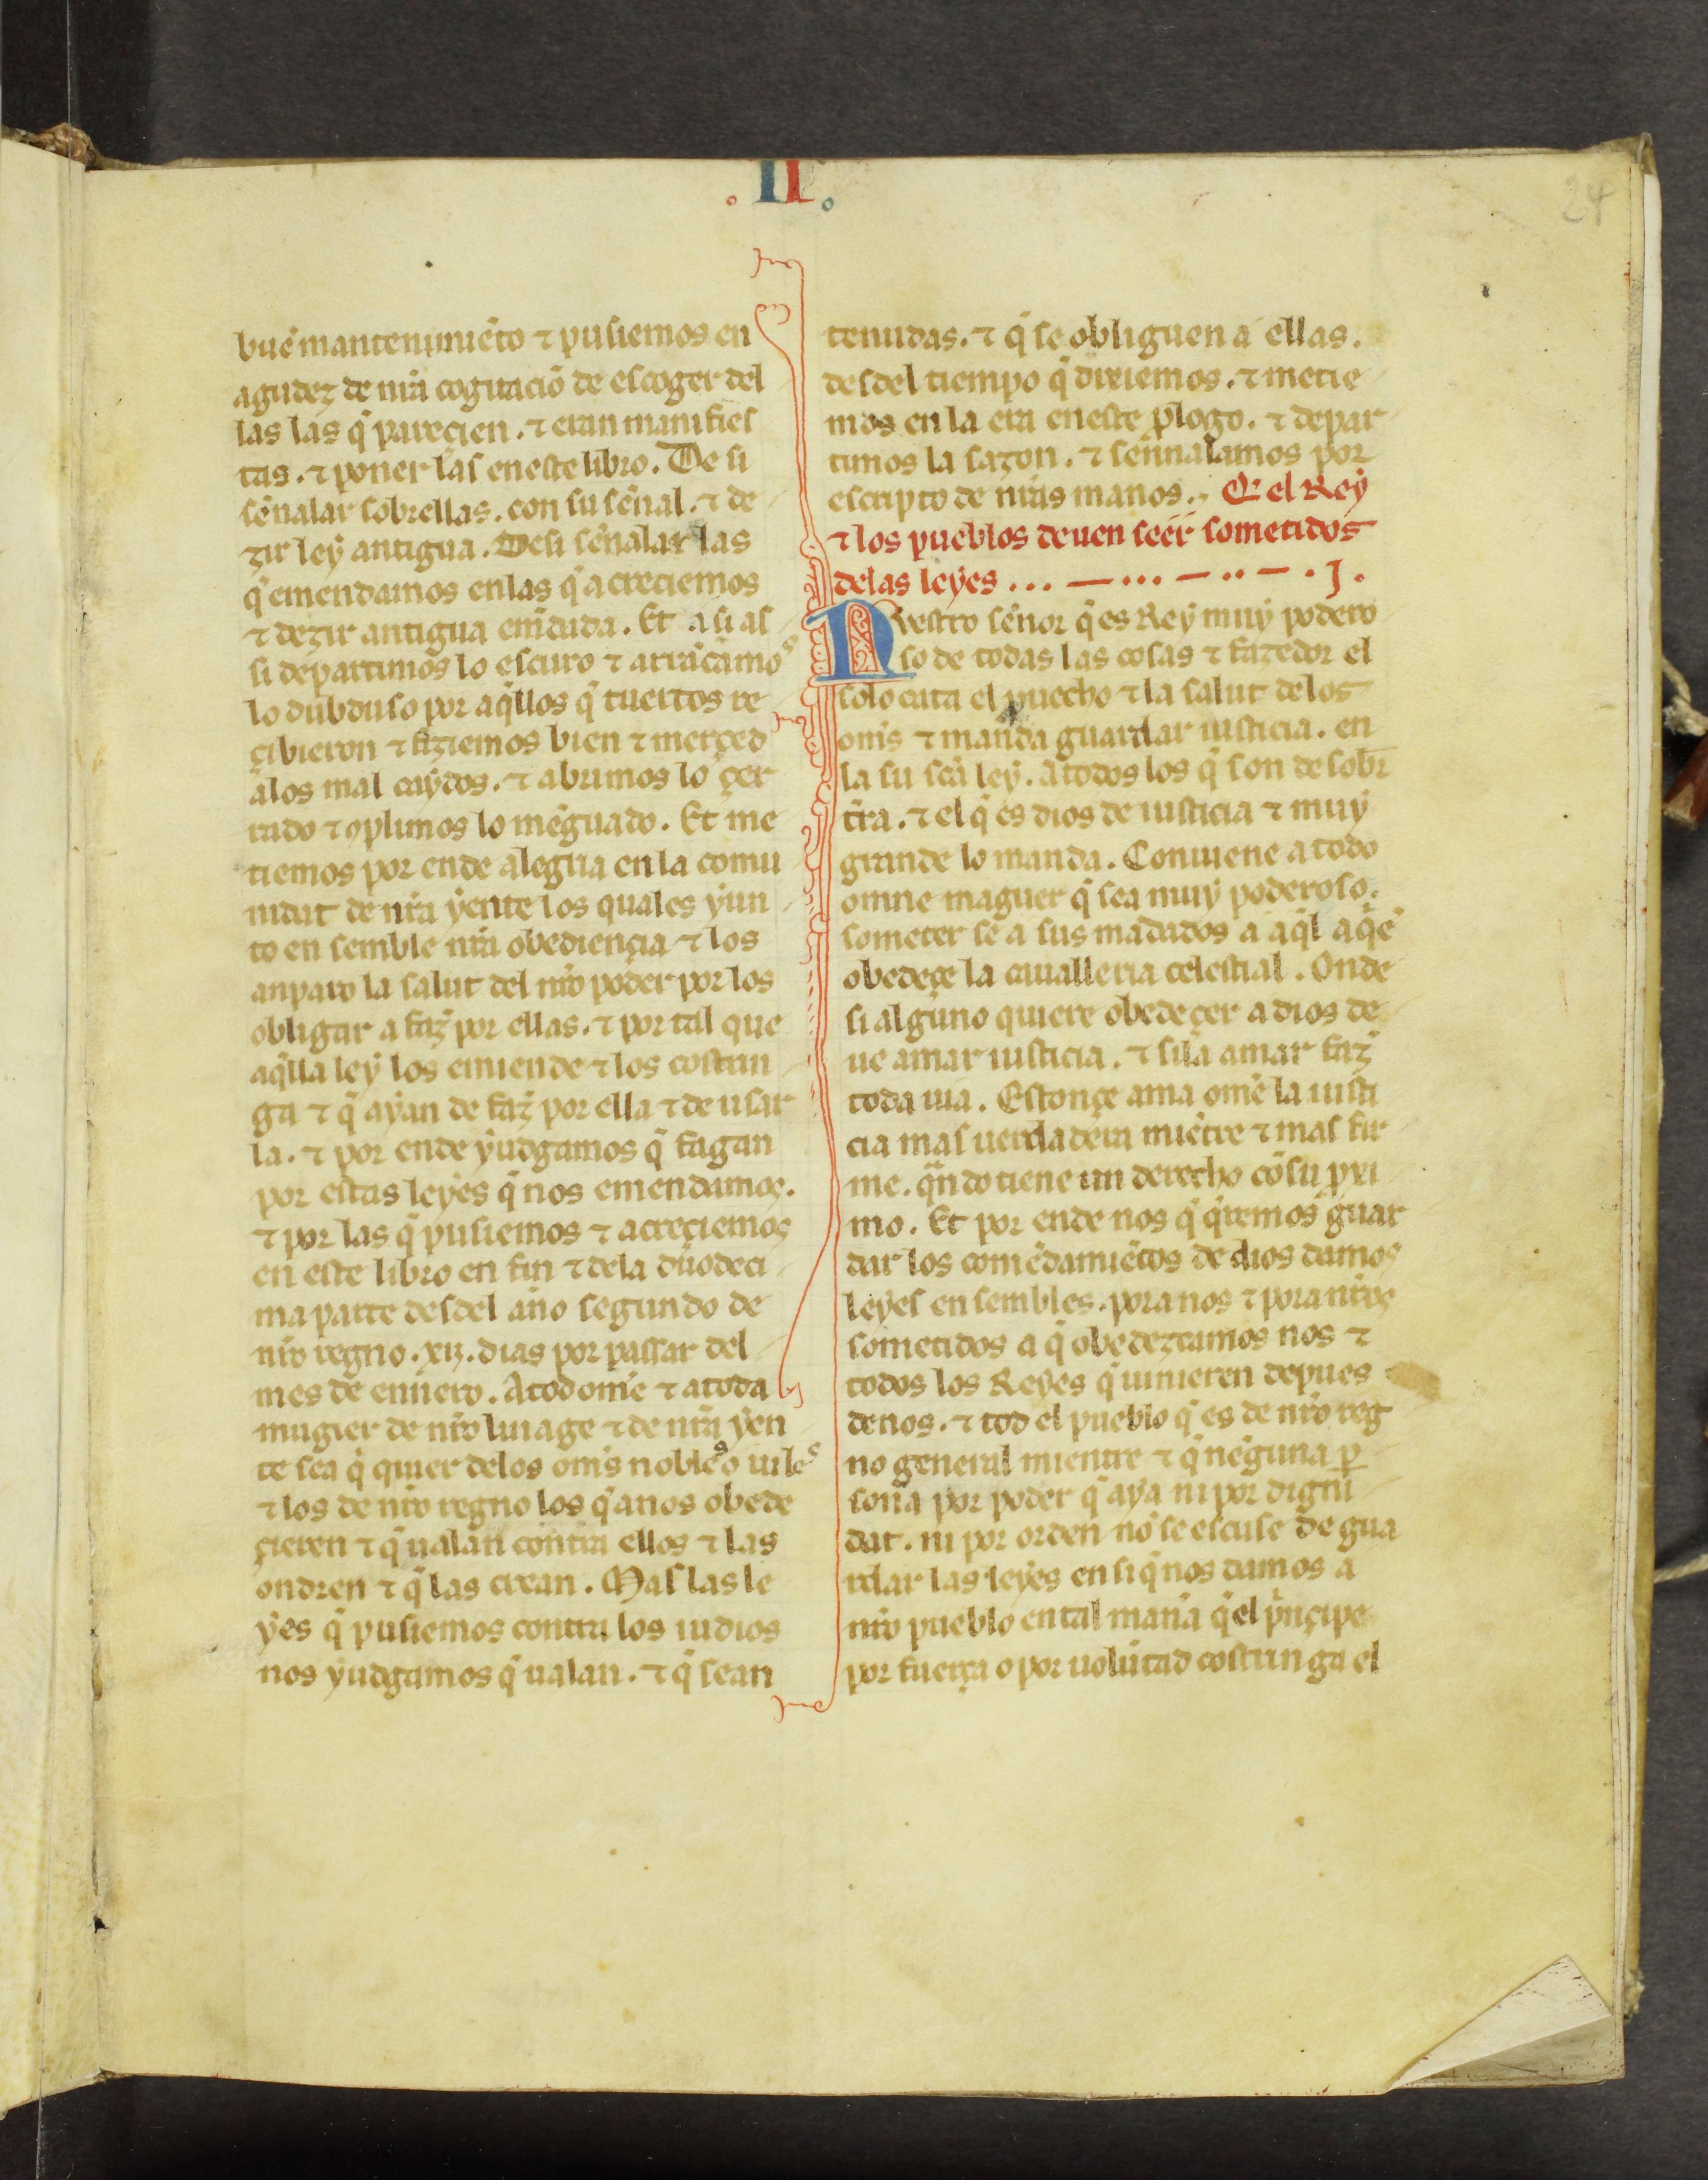 .II.
24
buē mantenimiēto ⁊ pusiemos en
agudez de nr̄a cogitaciō de escoger del
las las q̄ pareçien. ⁊ eran manifies
tas. ⁊ poner las en este libro. De si
sēnalar sobrellas. con su sēnal. ⁊ de
zir ley antigua. Desi sēnalar las
q̄ emendamos en las q̄ acreciemos
⁊ dezir antigua em̄duda. Et asi as
si departimos lo escuro ⁊ arrācamos
lo dubduso por aq̄llos q̄ tuertos re
çibieron ⁊ fiziemos bien ⁊ merçed
alos mal caydos. ⁊ abrimos lo çer
rado ⁊ ꝯplimos lo mēguado. Et me
tiemos por ende alegria en la comu
nidat de nr̄a yente los quales yun
to en semble nr̄a obediençia ⁊ los
anparo la salut del nr̄o poder por los
obligar a faz̄ por ellas. ⁊ por tal que
aq̄lla ley los emiende ⁊ los costrin
ga ⁊ q̄ ayan de faz̄ por ella ⁊ de usar
la. ⁊ por ende yudgamos q̄ fagan
por estas leyes q̄ nos emendamos.
⁊ por las q̄ pusiemos ⁊ acreçiemos
en este libro en fin ⁊ dela duodeci
ma parte desdel año segundo de
nr̄o regno. xij. dias por passar del
mes de ennero. A tod om̄e ⁊ a toda
mugier de nr̄o linage ⁊ de nr̄a yen
te sea q̄ quier delos om̄s nobles o uiles
⁊ los de nr̄o regno los q̄ anos obede
çieren ⁊ q̄ ualan contra ellos ⁊ las
ondren ⁊ q̄ las crean. Mas las le
yes q̄ pusiemos contra los iudios
nos yudgamos q̄ ualan. ⁊ q̄ sean
tenudas. ⁊ q̄ se obliguen a ellas.
desdel tiempo q̄ dixiemos. ⁊ metie
mos en la era en este ꝓlogo. ⁊ depar
timos la sazon. ⁊ sennalamos por
escripto de nr̄as manos. Q̄ el Rey
⁊ los pueblos deuen seer sometidos
delas leyes ... — ... — .. — . J .
Nuestro sēnor q̄ es Rey muy podero
so de todas las cosas ⁊ fazedor el
solo cata el ꝓuecho ⁊ la salut delos
om̄s ⁊ manda guardar iusticia. en
la su sc̄a ley. A todos los q̄ son de sobr̄
tr̄ra. ⁊ el q̄ es dios de iusticia ⁊ muy
grande lo manda. Conuiene a todo
omne maguer q̄ sea muy poderoso.
someter se a sus mādados a aq̄l a q̄ē
obedeçe la caualleria celestial. Onde
si alguno quiere obedeçer a dios de
ue amar iusticia. ⁊ sila amar faz̄
toda uia. Estonçe ama om̄e la iusti
cia mas uerdadera miētre ⁊ mas fir
me. q̄ndo tiene un derecho cō su pxi
mo. Et por ende nos q̄ q̄remos guar
dar los comēdamiētos de dios damos
leyes en sembles. pora nos ⁊ pora nr̄os
sometidos a q̄ obedezcamos nos ⁊
todos los Reyes q̄ uinieren depues
denos. ⁊ tod el pueblo q̄ es de nr̄o reg
no general mientre ⁊ q̄ nēguna ꝑ
sona por poder q̄ aya ni por digni
dat. ni por orden no se escuse de gua
rdar las leyes en si q̄ nos damos a
nr̄o pueblo en tal man̄a q̄ el pr̄nçipe
por fuerça o por uolūtad costringa el